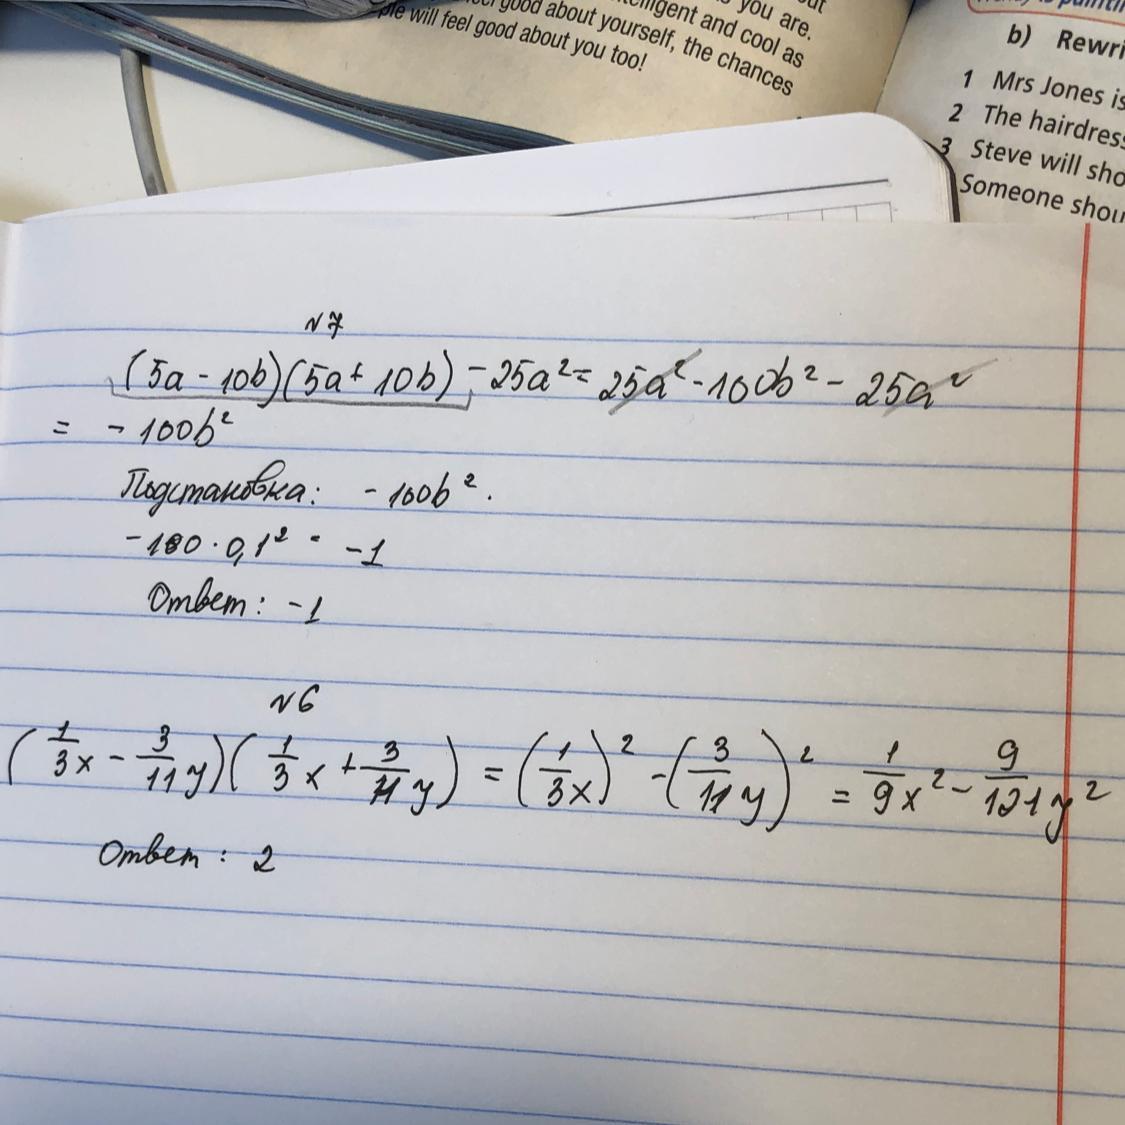 you are.
telligent and cool as
good about yourself, the chances
ple will feel good about you too!
b) Rewri
1 Mrs Jones is
2 The hairdress
3 Steve will sho
Someone shou
N7
(5a - 10b)(5a + 10b) - 25a² = 25a² - 100b² - 25a²
= - 100b²
Подстановка: - 100b².
-100 · 0,1² = -1
Ответ: -1
N6
(1/3x - 3/11y)(1/3x + 3/11y) = (1/3x)² - (3/11y)² = 1/9x² - 9/121y²
Ответ: 2